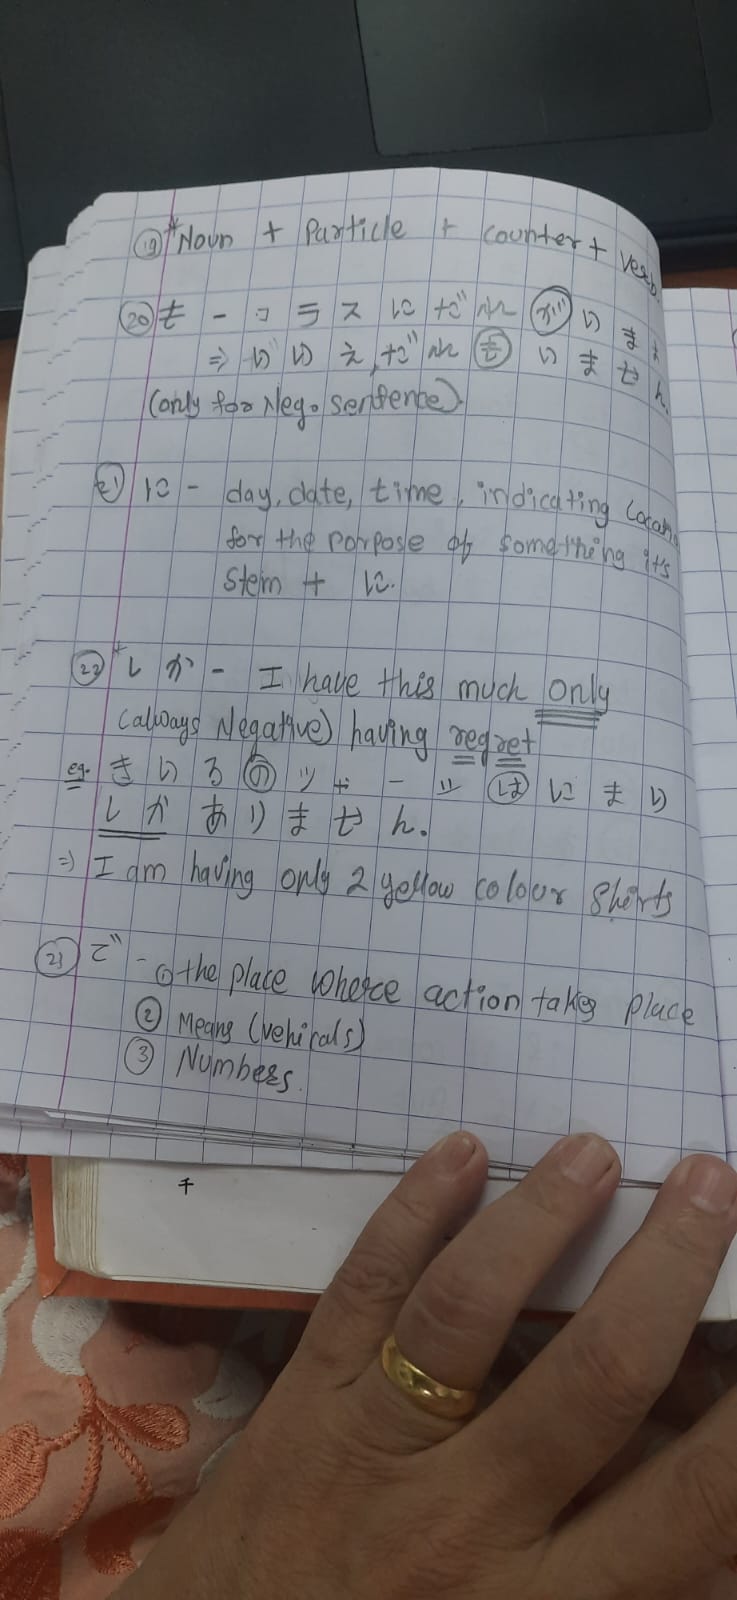 ⑲ *Noun + Particle + counter + verb.
⑳ も - コラスにだれがいます
⇒ いいえ,だれもいません.
(only for Neg. sentence).
㉑ に - day, date, time, indicating
for the porpose of something its
stem + に.
㉒ *しか - I have this much only
(always Negative) having regret
eg. きいろのツャーツはにまい
しかありません.
⇒ I am having only 2 yellow colour Shirts
で - ① the place where action takes place
② Means (vehicals)
③ Numbers.
千